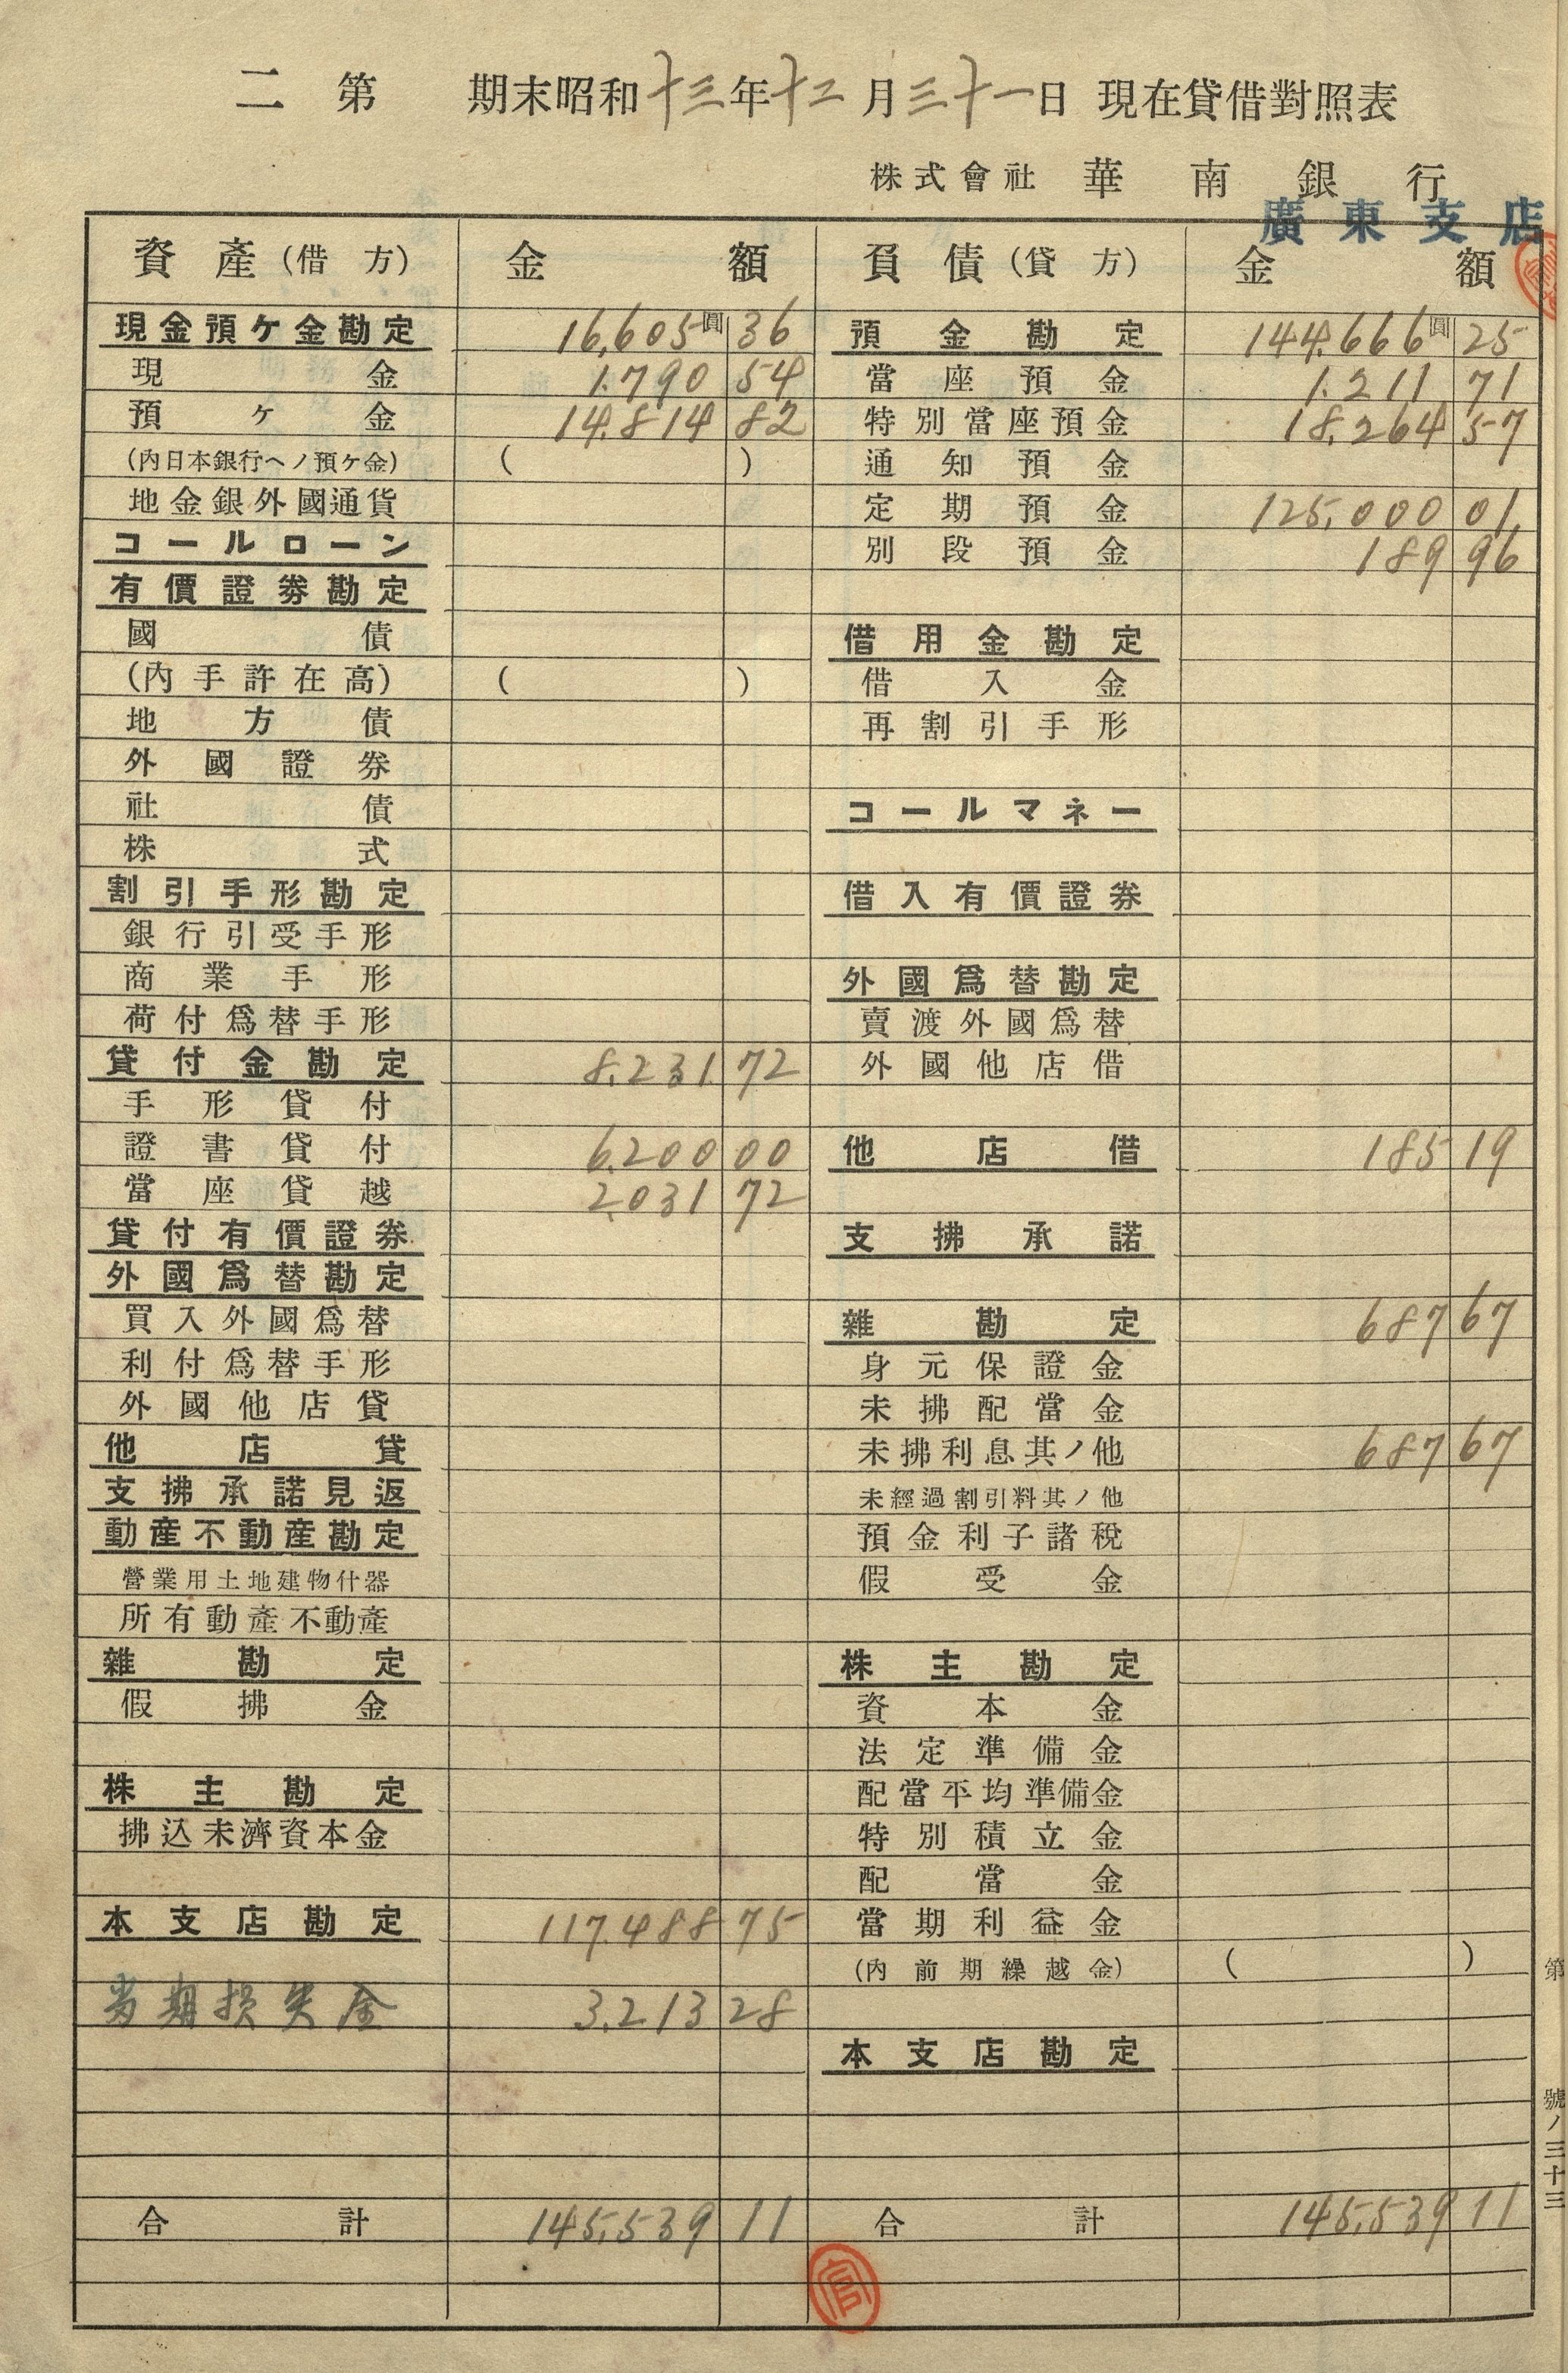 二 第 期末昭和十三年十二月三十一日 現在貸借對照表
株式會社 華南銀行
廣東支店
資產(借方) 金額 負債(貸方) 金額
現金預ケ金勘定 16,605圓36 預金勘定 144,666圓25
現金 1,790 54 當座預金 1,211 71
預ケ金 14,814 82 特別當座預金 18,264 57
(內日本銀行ヘノ預ケ金) ( ) 通知預金
地金銀外國通貨 定期預金 125,000 01
コールローン 別段預金 189 96
有價證券勘定
國債 借用金勘定
(內手許在高) ( ) 借入金
地方債 再割引手形
外國證券
社債 コールマネー
株式
割引手形勘定 借入有價證券
銀行引受手形
商業手形 外國爲替勘定
荷付爲替手形 賣渡外國爲替
貸付金勘定 8,231 72 外國他店借
手形貸付
證書貸付 6,200 00 他店借 185 19
當座貸越 2,031 72
貸付有價證券 支拂承諾
外國爲替勘定
買入外國爲替 雜勘定 687 67
利付爲替手形 身元保證金
外國他店貸 未拂配當金
他店貸 未拂利息其ノ他 687 67
支拂承諾見返 未經過割引料其ノ他
動產不動產勘定 預金利子諸稅
營業用土地建物什器 假受金
所有動產不動產
雜勘定 株主勘定
假拂金 資本金
法定準備金
株主勘定 配當平均準備金
拂込未濟資本金 特別積立金
配當金
本支店勘定 117,488 75 當期利益金
(內前期繰越金) ( )
当期損失金 3,213 28
本支店勘定
合計 145,539 11 合計 145,539 11
第 號ノ三十三